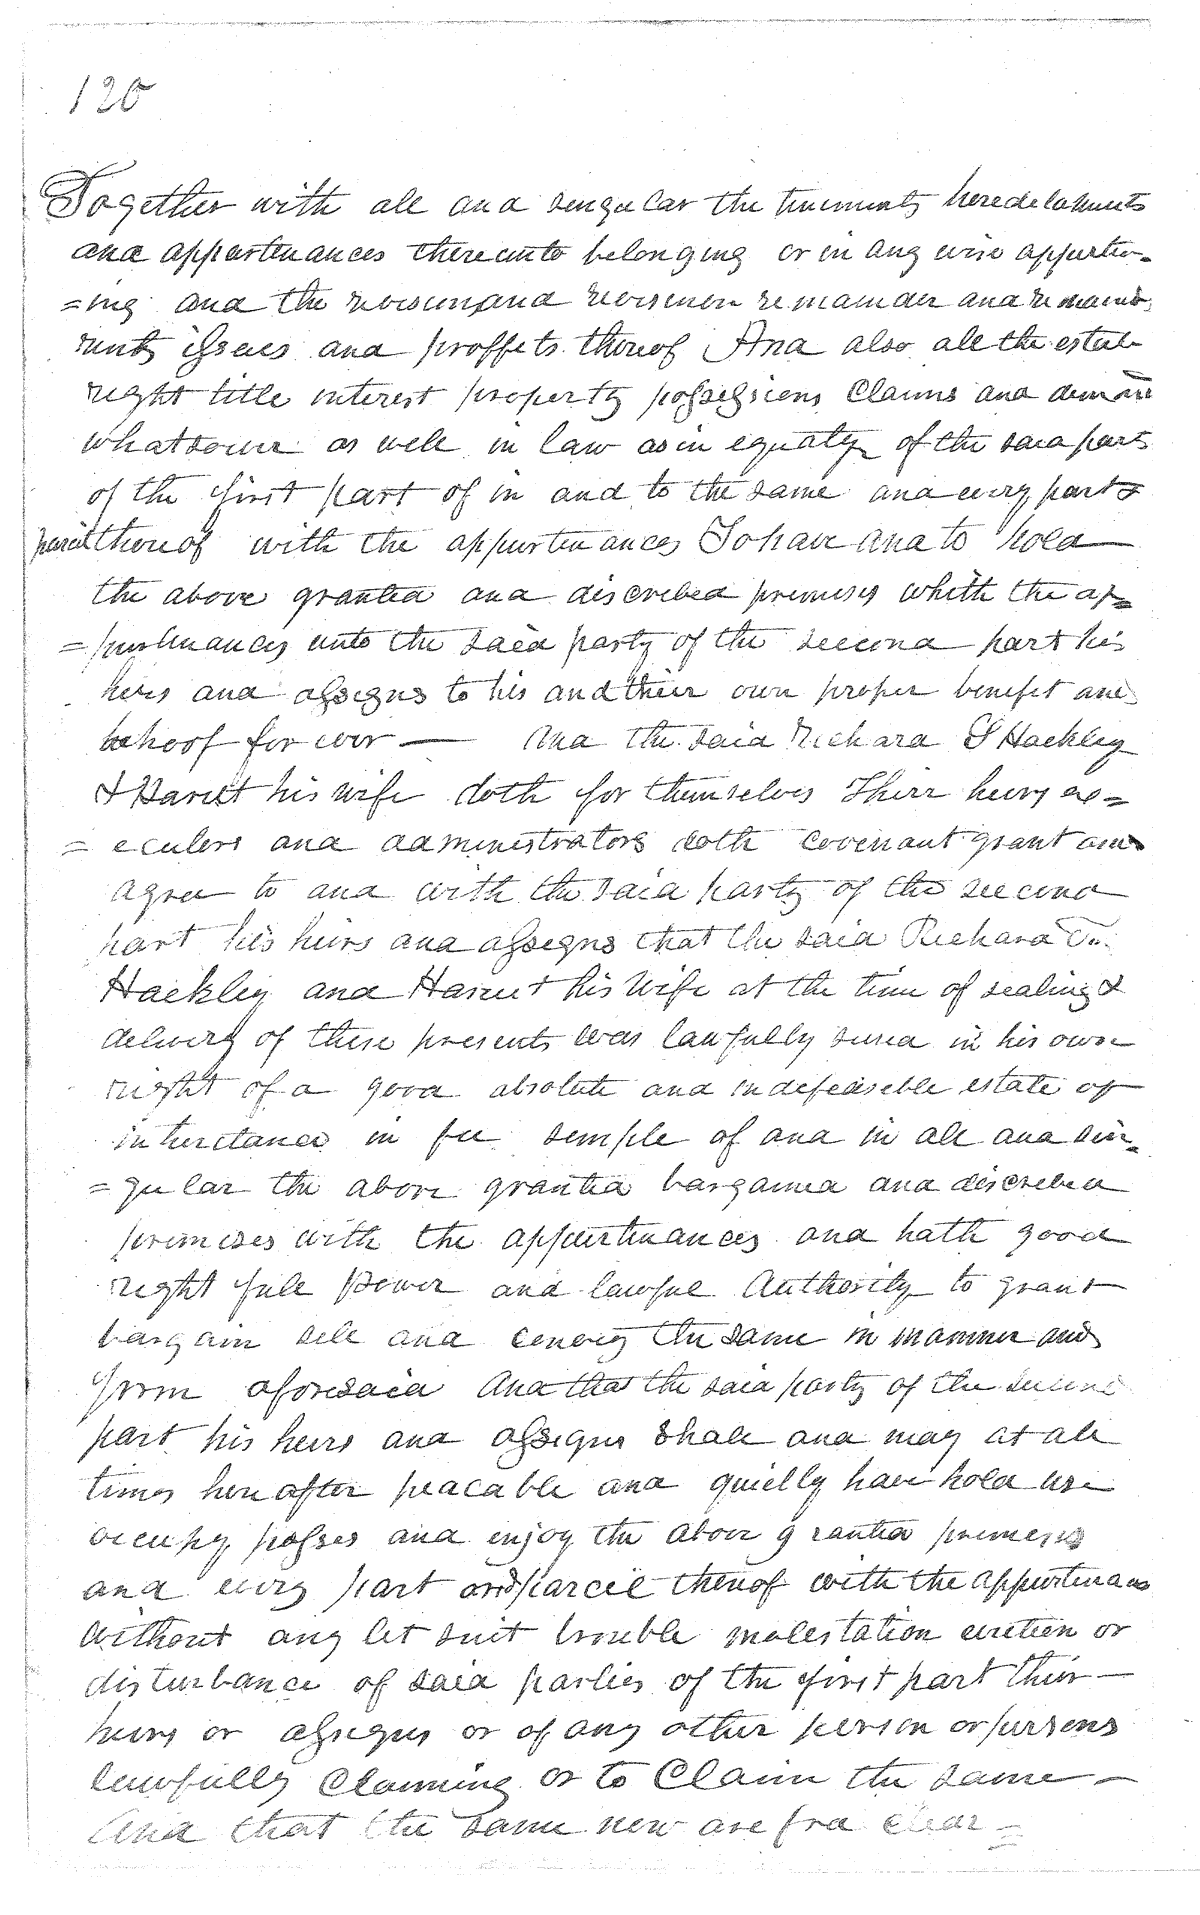 120
Together with all and singular the tinements heredetaments
and appurtenances thereunto belonging or in any wise appurtin-
=ing and the revirsion and reversion remainder and remaind
rents issues and proffets thereof And also all the estate
right title interest property possessions Claims and demand
whatsover as well in law as in equaty of the said part
of the first part of in and to the same and every part &
parcil thereof with the appurtenances To have and to hold
the above granted and discribed premises whith the ap=
=purtinances unto the said party of the seecond part his
heirs and assigns to his and their own proper benefit and
behoof for ever — And the said Richard S Hackley
& Hariet his wife doth for themselves Thier heirs ex=
=eculers and administrators doth covenant grant and
agree to and with the said party of the seecond
part his heirs and assigns that the said Richard
Hackley and Hariet his wife at the time of sealing &
delivery of these presents was lawfully siezed in his own
right of a good absolute and indefeasible estate of
inheritance in fee semple of and in all and sin=
=gular the above granted bargained and discribed
premeses with the appurtenances and hath good
right full power and lawful Authority to grant
bargain sell and convey the same in manner and
form aforesaid And that the said party of the second
part his heirs and assigns shall and may at all
times hereafter peacable and quietly have hold use
occupy posses and enjoy the above granted premises
and every part and parcel thereof with the appurtenances
without any let suit trouble molestation eviction or
disturbance of said parties of the first part thier —
heirs or assigns or of any other person or persons
lawfully Claiming or to Claim the same —
And that the same now are free clear =